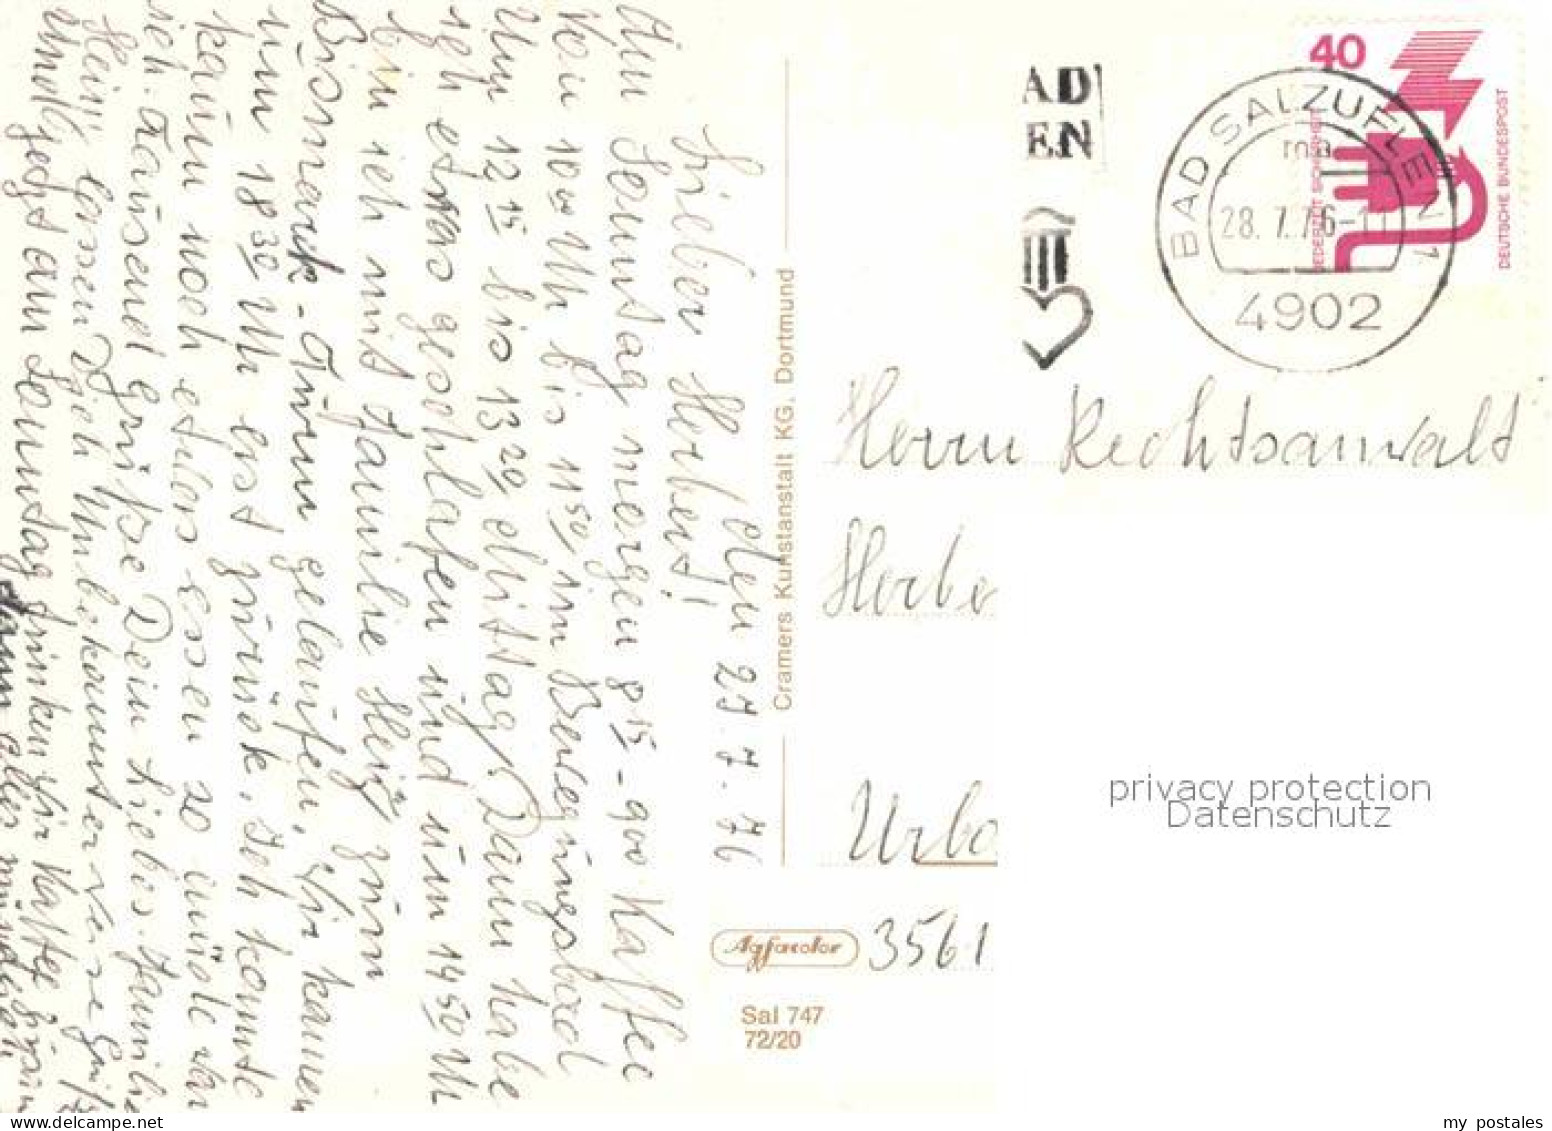 den 27.7.76
Lieber Herbert!
Am Sonntag morgen 8 15 - 9 00 Kaffee
Von 10 00 Uh bis 11 50 im Bewegungsbad
Um 12 15 bis 13 20 Mittag. Dann habe
ich etwas geschlafen und um 14 50 Uh
bin ich mit Familie Heinz zum
Bismarck-Turm gelaufen. Wir kamen
um 18 30 Uh erst zurück. Ich konnte
kaum noch etwas essen so müde war
ich. Tausend Grüße Dein Liebes. Familie
Heinz lassen Dich Unbekannterweise
jetzt am Sonntag trinken wir Kaffee
40
DEUTSCHE BUNDESPOST
JEDERZEIT SICHERHEIT
AD
EN
BAD SALZUFLEN 1
28.7.76-1
4902
Herrn Rechtsanwalt
Herbe
Urba
3561
Cramers Kunstanstalt KG. Dortmund
Agfacolor
Sal 747
72/20
privacy protection
Datenschutz
my postales